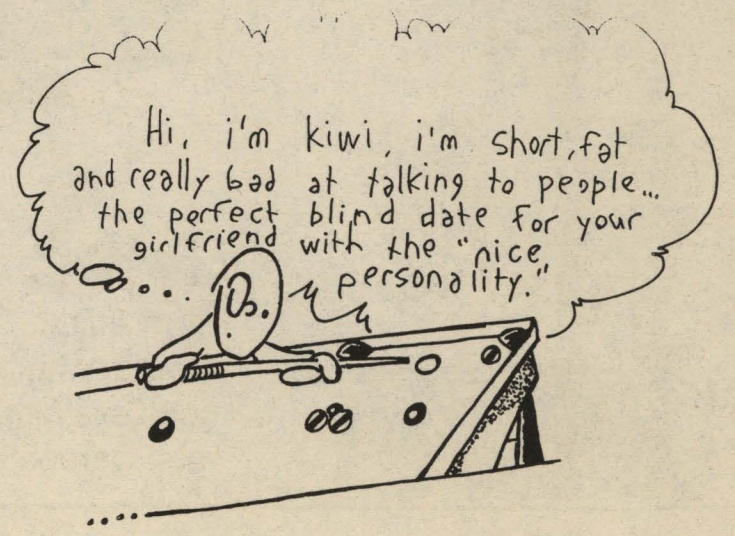 Hi, i'm kiwi, i'm short, fat
and really bad at talking to people...
the perfect blind date for your
girlfriend with the "nice
personality."